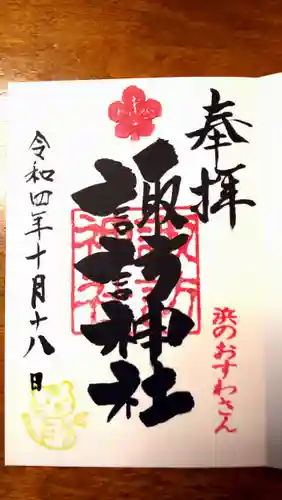 奉拝
浜のおすわさん
諏訪神社
令和四年十月十八日